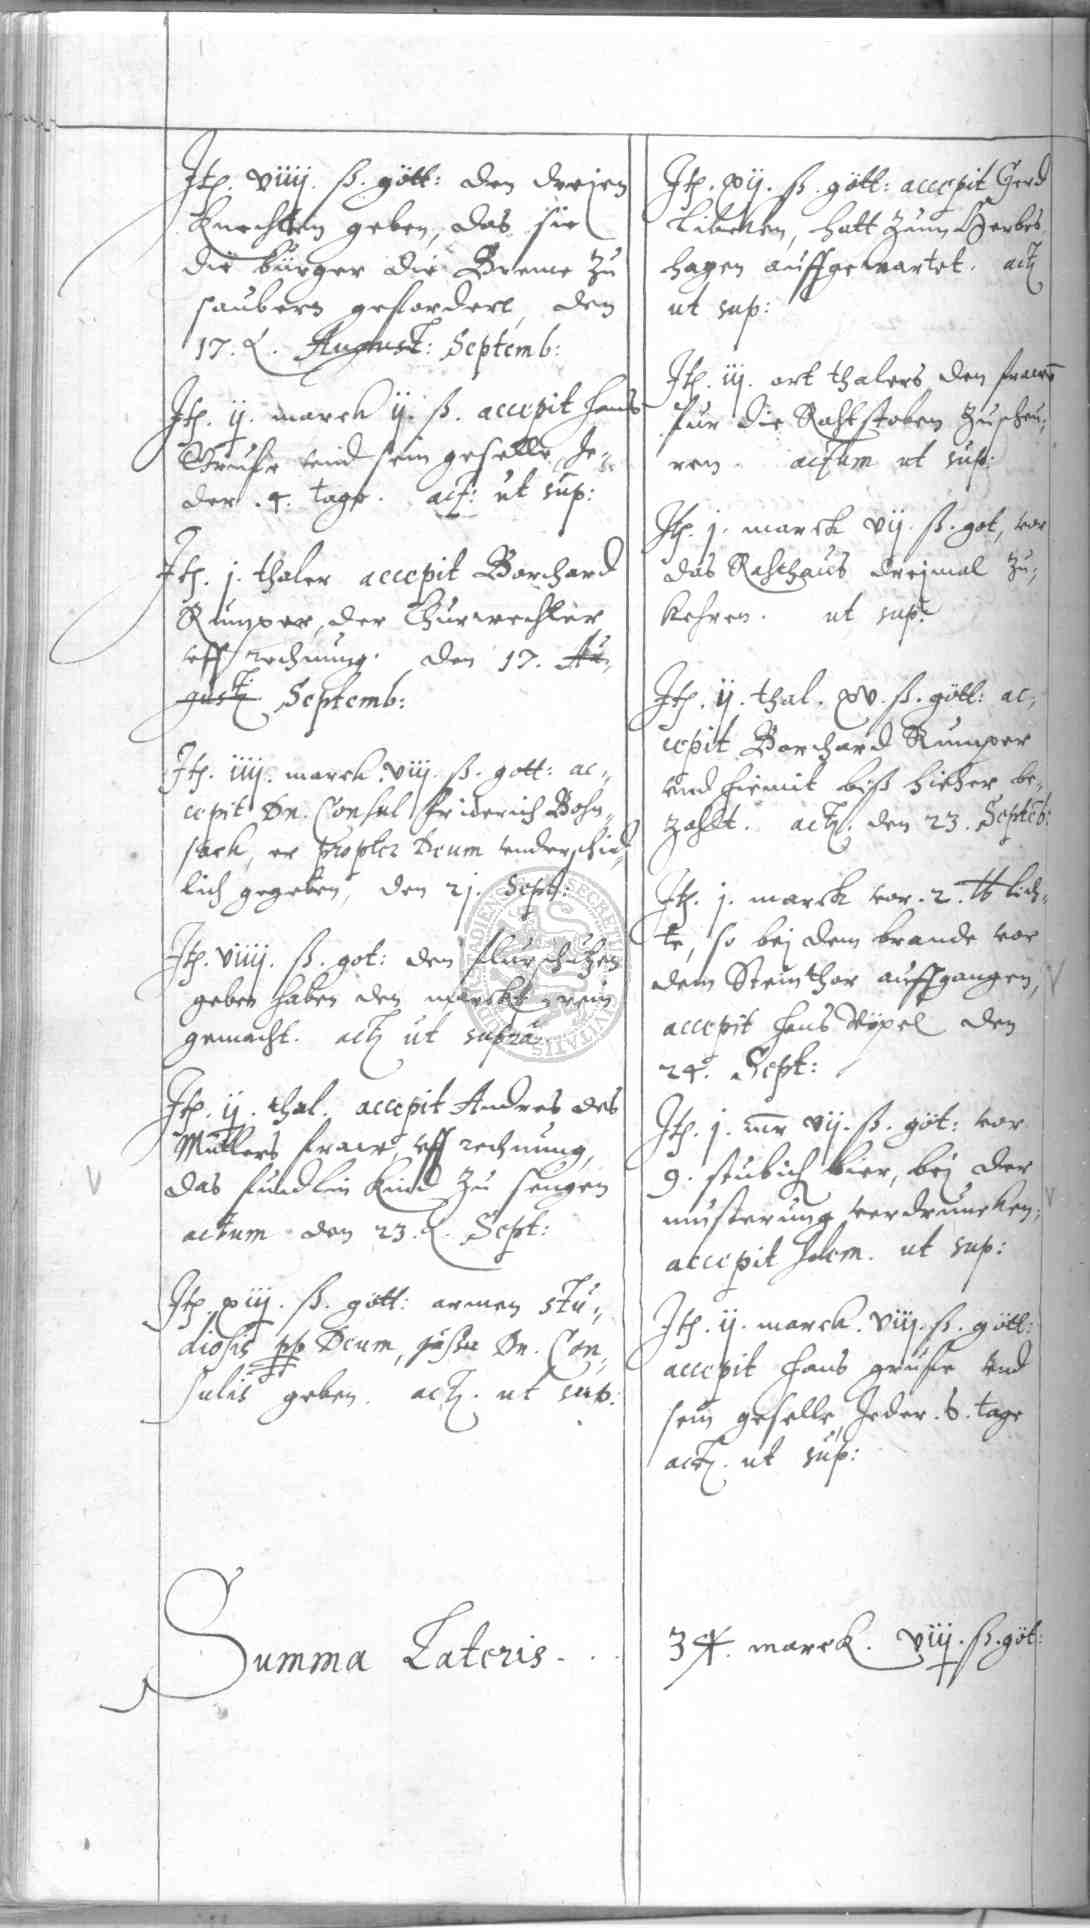 Itē. viiij. ß. gött: den dreien
Knechten geben, das sie
die bürger die Breme zu
saubern gefordert, den
17.
August: Septemb:
Itē. ij. marck ij. ß. accepit Hans
Gruse vnd sein geselle, Je-
der .4. tage. act: ut sup:
Itē. j. thaler accepit Borchard
Rumper, der Thurwechter
vff rechnung. den 17. Au-
gusti Septemb:
Itē. iiij. marck. viij. ß. gott: ac-
cepit Dn. Consul Friderich Bohn-
sack, er propter Deum vnderschie-
lich gegeben, den 21. Sept:
Itē. viiij. ß. got: den flurschutzen
geben haben den marckt rein
gemacht. act ut supra
Itē. ij. thal. accepit Andres des
Mullers fraw, vff rechnung,
das fundlin Kind zu seugen
actum den 23. Sept:
Itē. xiij. ß. gött: armen stu-
diosis pp Deum, jussu Dn. Con-
sulis geben. act. ut sup:
Itē. xij. ß. gött: accepit Gerd
hatt zum Herbes
hagen auffgewartet. act
ut sup:
Itē. iij. ort thalers den frawē
fur die Rahtstoben zuscheu-
ren. actum ut sup:
Itē. j. marck vij. ß. got, vor
das Rahthaus dreimal zu-
kehren. ut sup:
Itē. ij. thal. xv. ß. gött: ac-
cepit Borchard Rumper
vnd hiemit biß hieher be-
zahlt. act. den 23. Septēb:
Itē. j. marck vor. 2. ℔ lich-
te, so bej dem brande vor
dem Steinthor auffgangen,
accepit Hans den
24. Sept:
Itē. j. mr vij. ß. göt: vor
9. stubich bier, bej der
musterung verdruncken,
accepit Idem. ut sup:
Itē. ij. marck. viij. ß. gött:
accepit Hans gruse vnd
sein geselle Jeder .6. tage
act. ut sup:
Summa Lateris . . . 34. marck. viij. ß. göt: